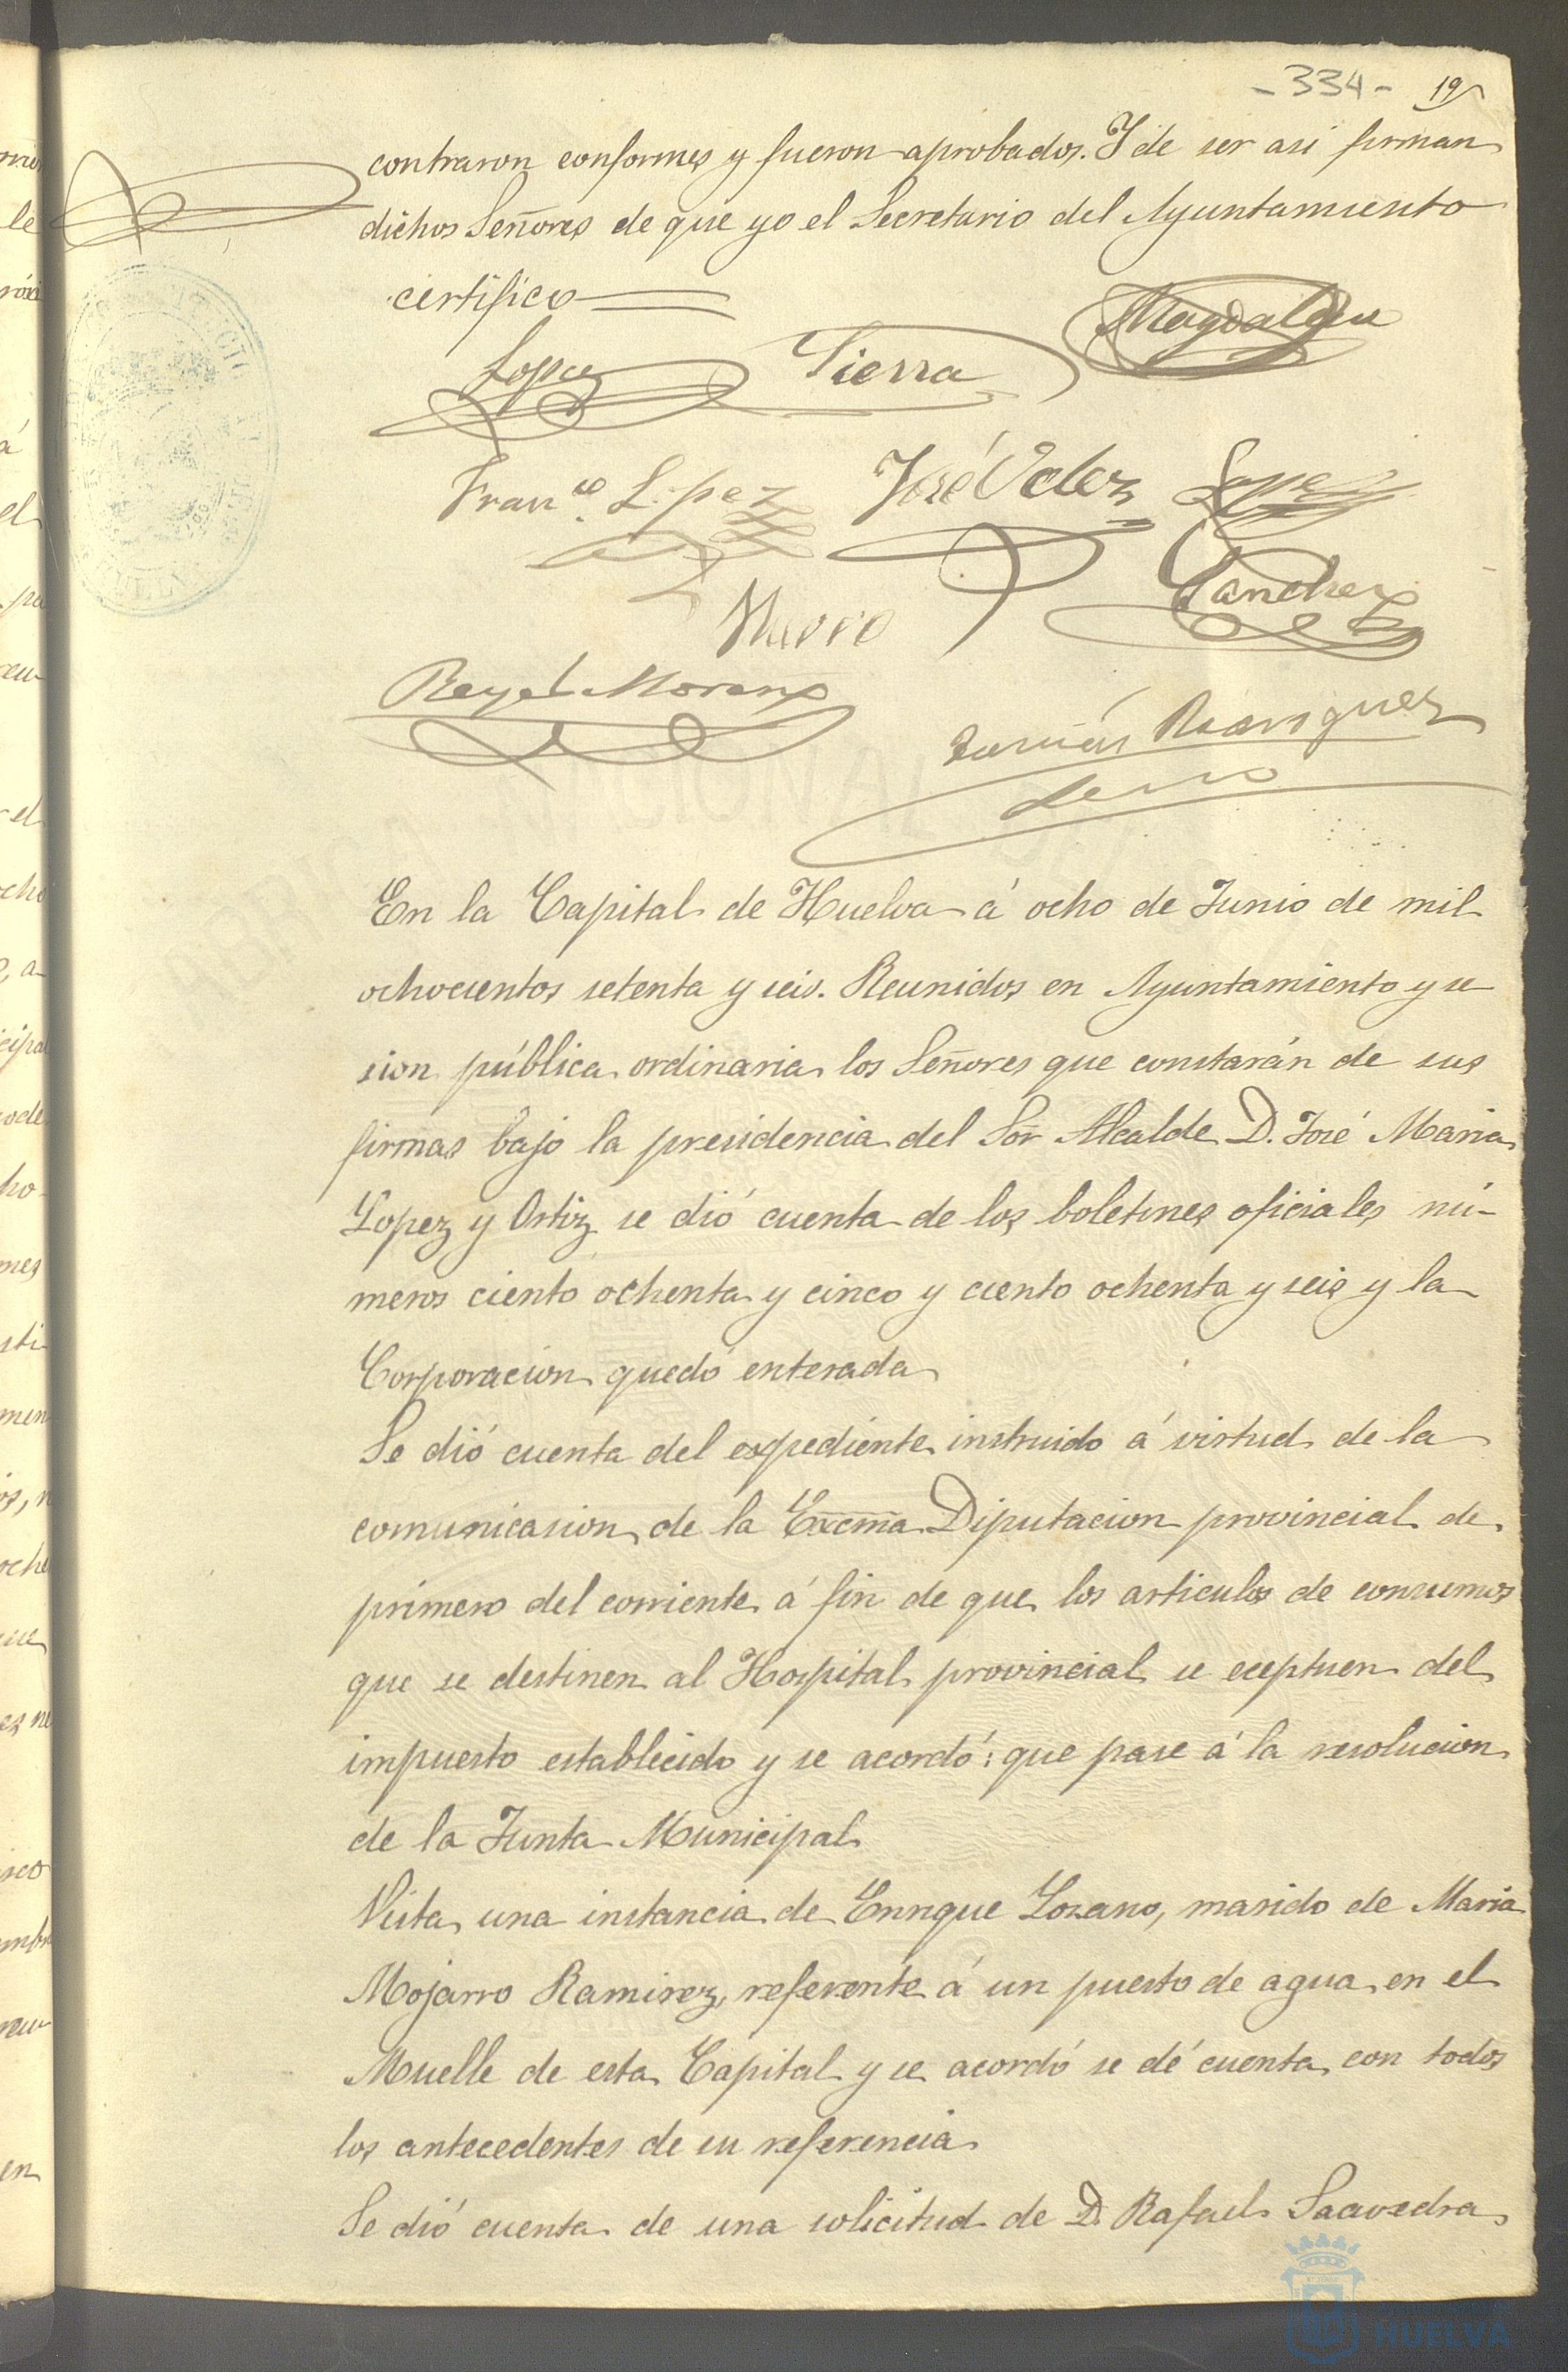 -334- 19
contraron conformes y fueron aprobados. Y de ser asi firman
dichos Señores de que yo el Secretario del Ayuntamiento
certifico
Magdalena
Lopez Tierra
Franco. Lopez José Velez Lopez
Sanchez
Navro
Rafael Moreno
Rodriguez
En la Capital de Huelva á ocho de Junio de mil
ochocientos setenta y seis. Reunidos en Ayuntamiento y se
sion pública ordinaria los Señores que constarán de sus
firmas bajo la presidencia del Sor Alcalde D. José Maria
Lopez y Ortiz se dió cuenta de los boletines oficiales nú-
meros ciento ochenta y cinco y ciento ochenta y seis y la
Corporacion quedó enterada
Se dió cuenta del expediente instruido á virtud de la
comunicasion de la Excma Diputacion provincial de
primero del corriente á fin de que los articulos de consumos
que se destinen al Hospital provincial se eceptuen del
impuesto establecido y se acordó: que pase á la resolucion
de la Junta Municipal
Vista una instancia de Enrique Lozano, marido de Maria
Mojarro Ramirez, referente á un puesto de agua en el
Muelle de esta Capital y se acordó se dé cuenta con todos
los antecedentes de su referencia
Se dió cuenta de una solicitud de D. Rafael Saavedra
HUELVA